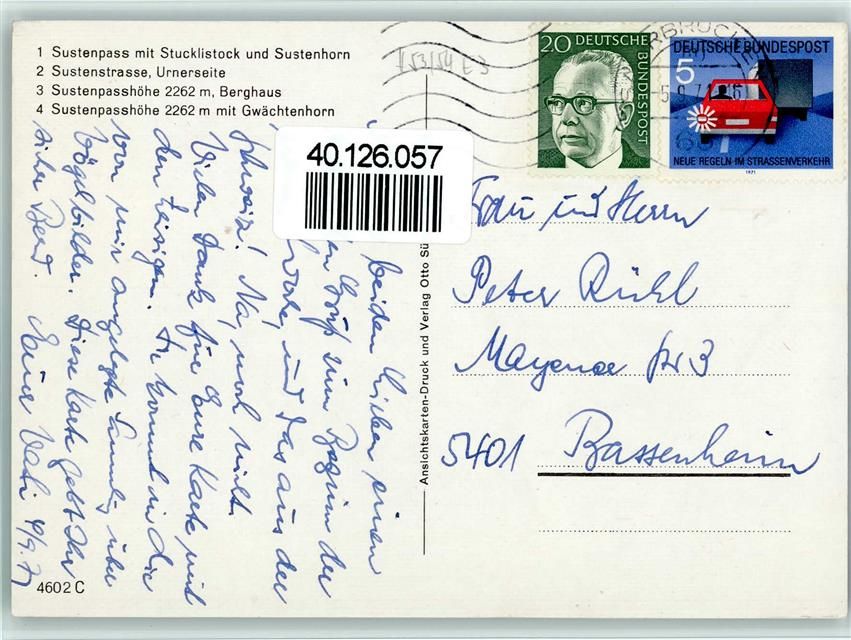 1 Sustenpass mit Stucklistock und Sustenhorn
2 Sustenstrasse, Urnerseite
3 Sustenpasshöhe 2262 m, Berghaus
4 Sustenpasshöhe 2262 m mit Gwächtenhorn
153/154 E3
20 DEUTSCHE BUNDESPOST
DEUTSCHE BUNDESPOST
5
NEUE REGELN IM STRASSENVERKEHR
1971
40.126.057
beiden Lieben einen
Gruß zum Beginn der
und das aus der
Schweiz! Na, noch nicht.
Vielen Dank für Eure Karte mit
den Zeisigen. Sie kommt in die
von mir angelegte Sammlg über
Vögelbilder. Diese Karte gebt Ihr
sicher Bernd.
Euer Vati 4/9.71
Frau und Herrn
Peter Rühl
Mayener Str 3
5401 Bassenheim
Ansichtskarten-Druck und Verlag Otto Sü
4602 C